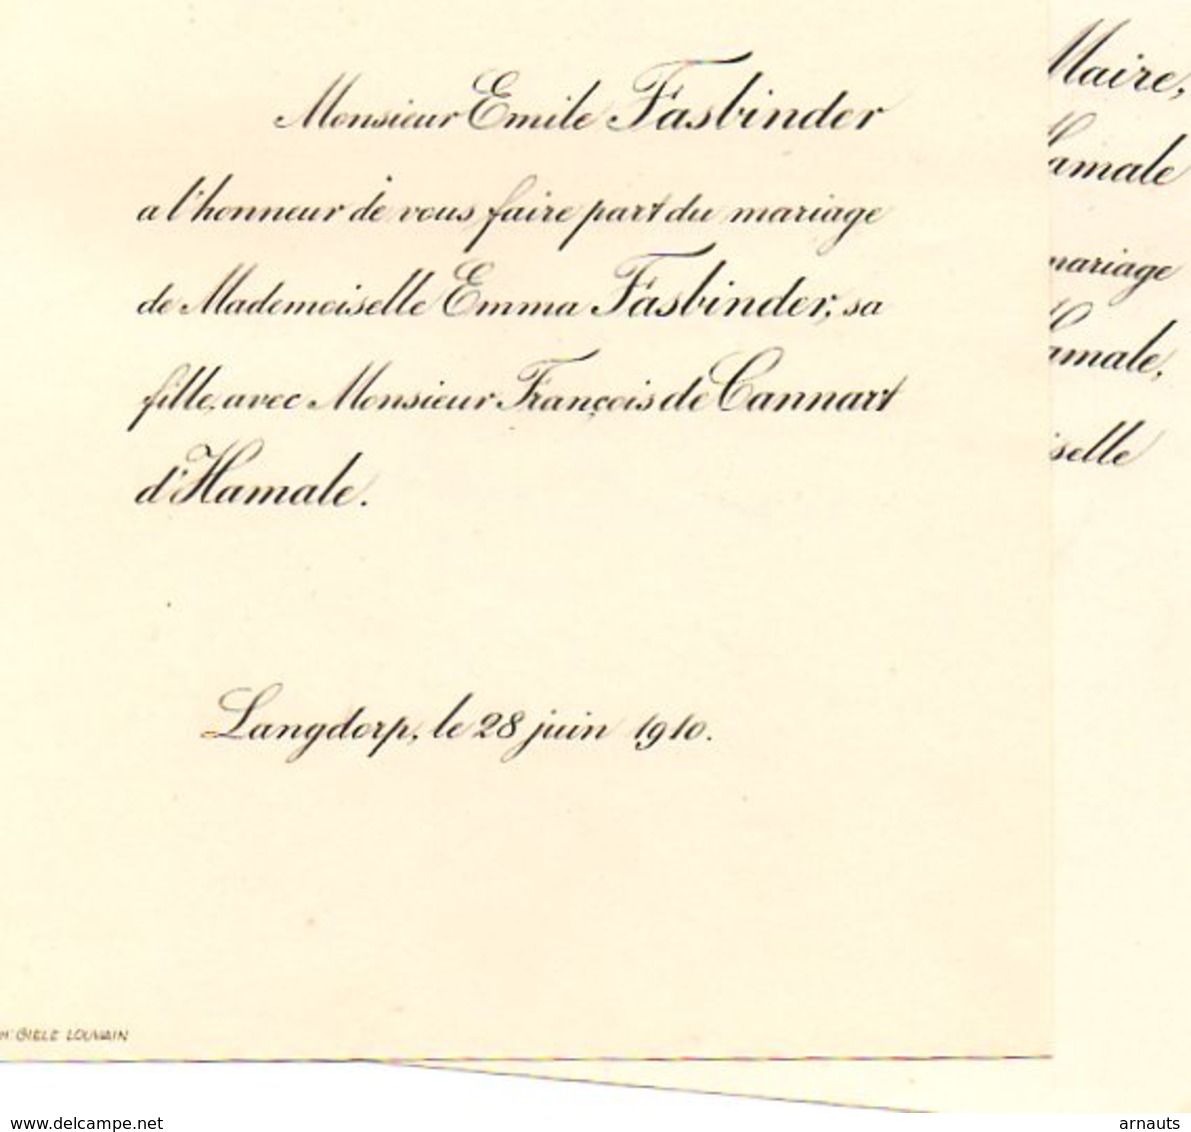 Monsieur Emile Fasbinder
a l'honneur de vous faire part du mariage
de Mademoiselle Emma Fasbinder, sa
fille, avec Monsieur François de Cannart
d'Hamale.
Langdorp, le 28 juin 1910.
GIELE LOUVAIN
Maire,
Hamale
mariage
Hamale,
selle
www.delcampe.net
arnauts